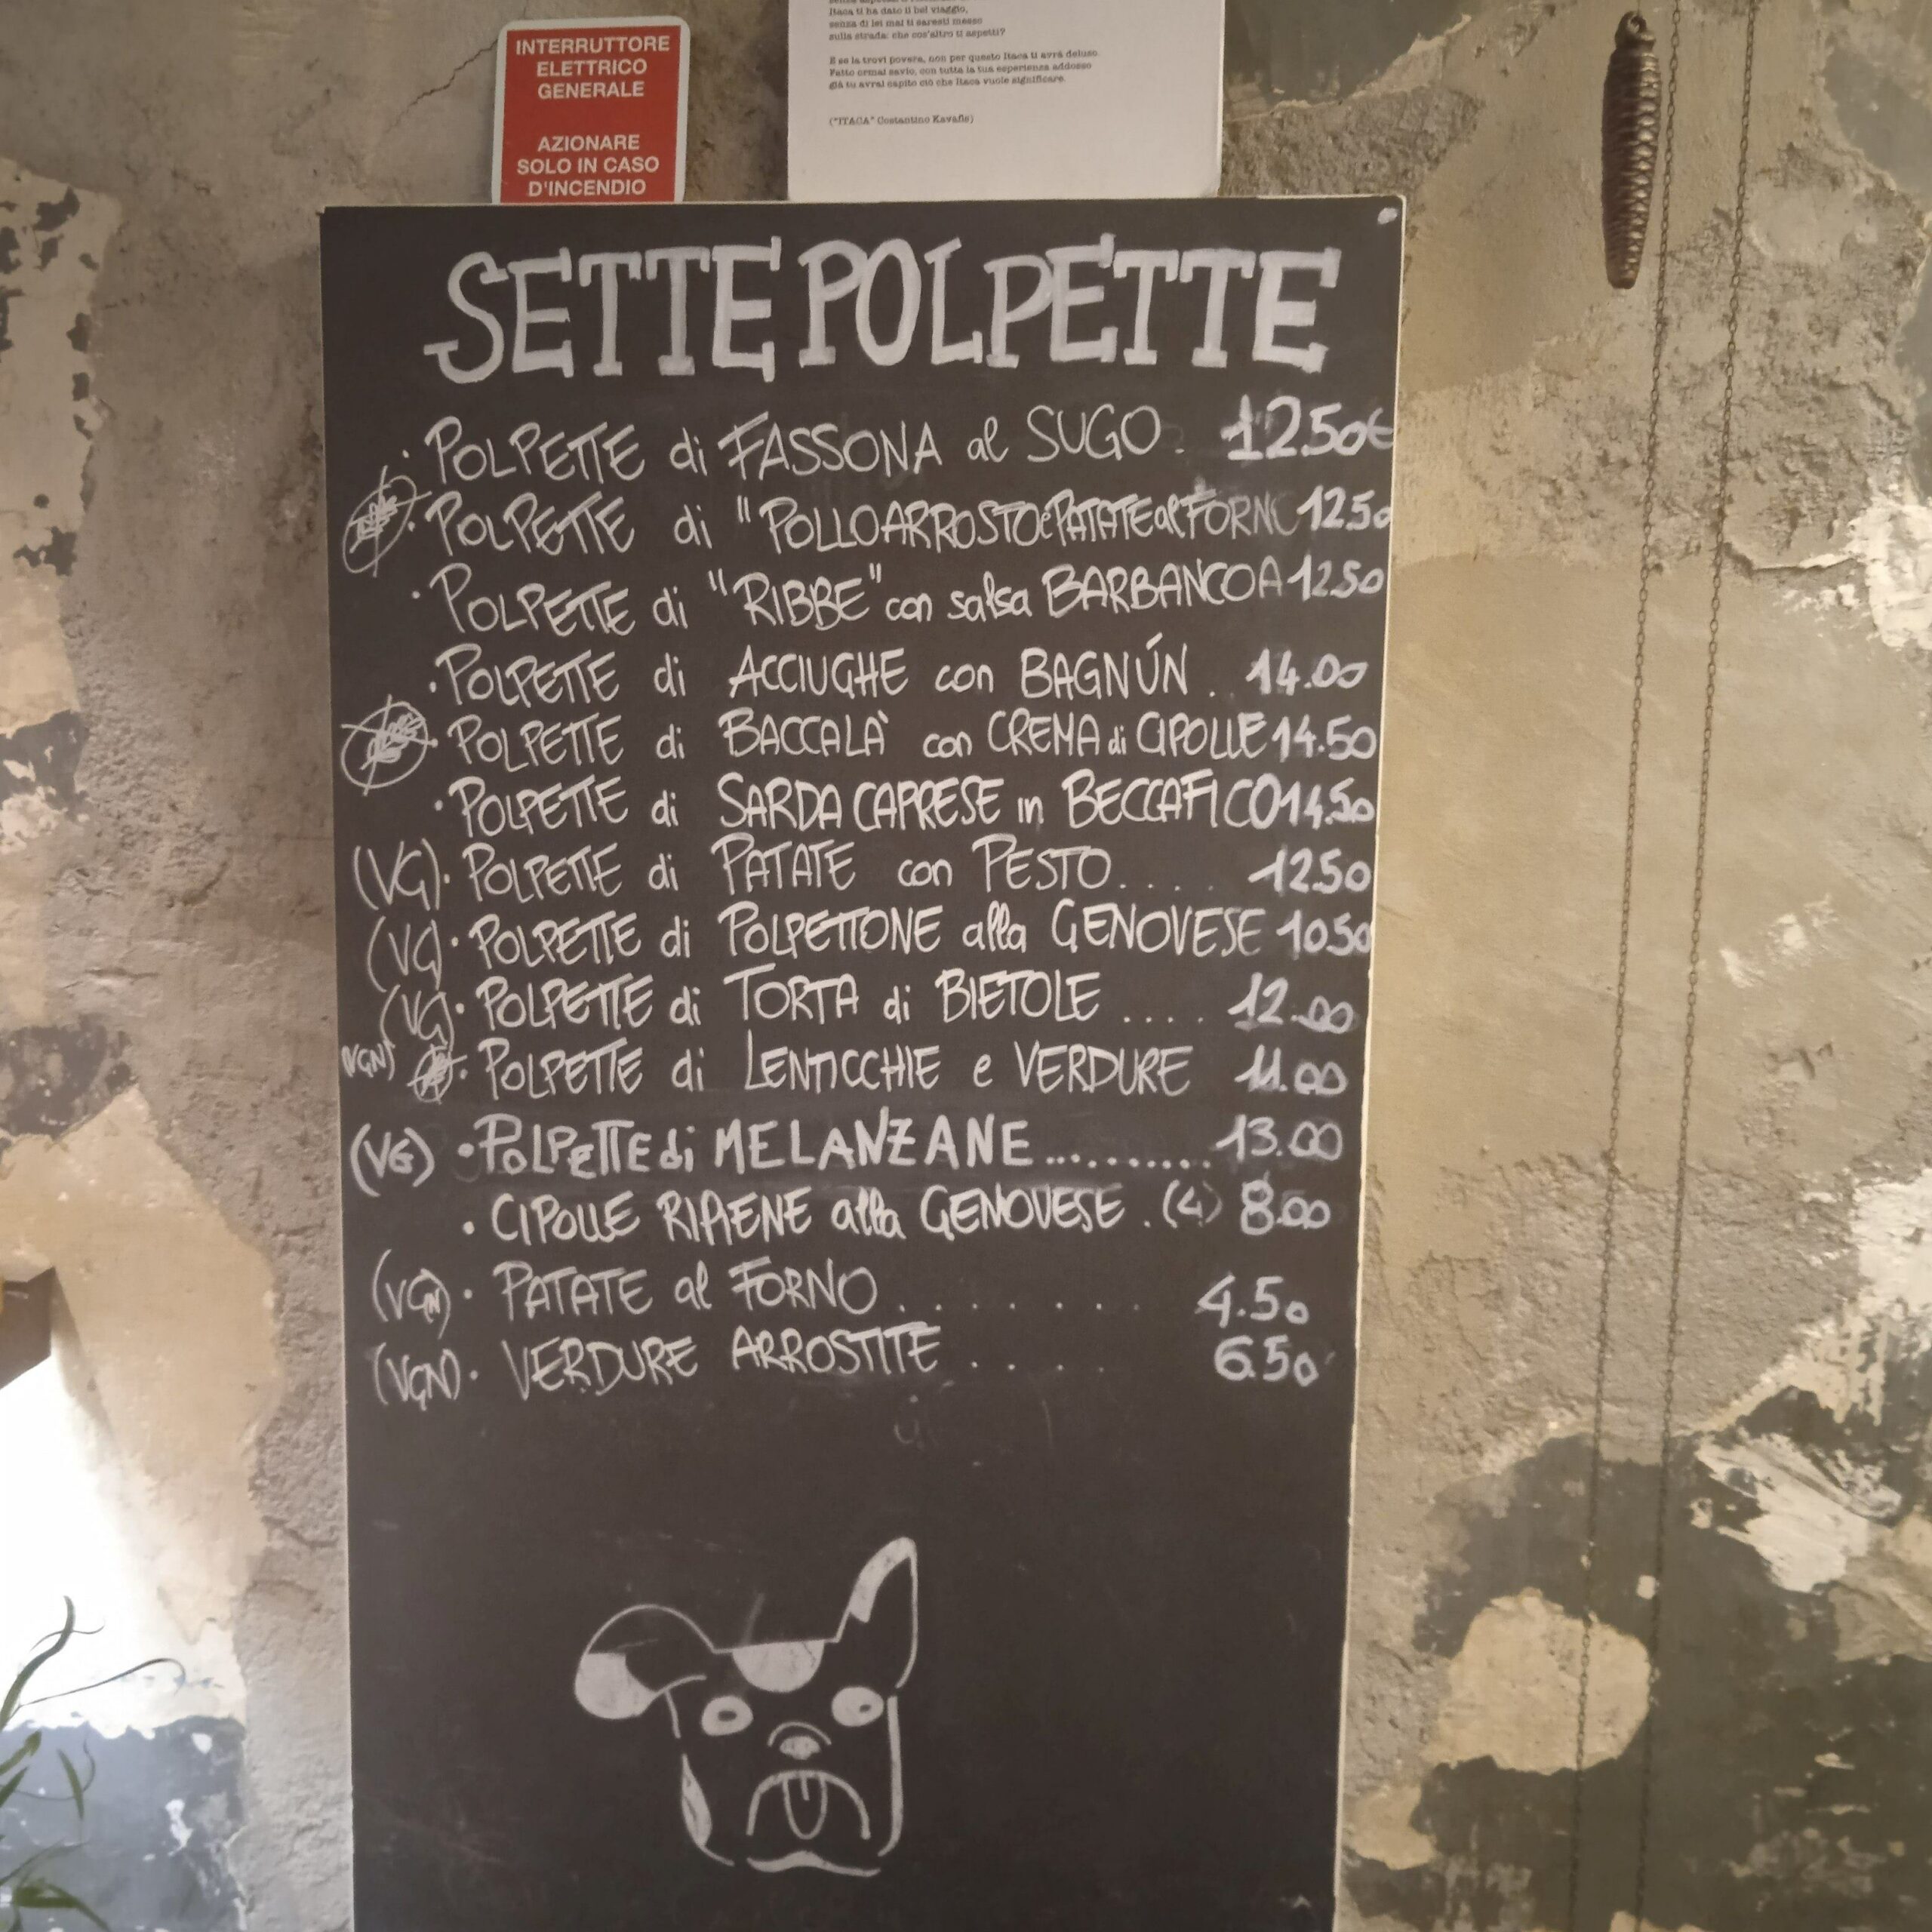 INTERRUTTORE
ELETTRICO
GENERALE
AZIONARE
SOLO IN CASO
D'INCENDIO
Itaca ti ha dato il bel viaggio,
senza di lei mai ti saresti messo
sulla strada: che cos'altro ti aspetti?
E se la trovi povera, non per questo Itaca ti avrà deluso.
Fatto ormai savio, con tutta la tua esperienza addosso
già tu avrai capito ciò che Itaca vuole significare.
("ITACA" Costantino Kavafis)
SETTE POLPETTE
· POLPETTE di FASSONA al SUGO. 12.50€
· POLPETTE di "POLLO ARROSTO e PATATE al FORNO 12.50
· POLPETTE di "RIBBE" con salsa BARBANCOA 12.50
· POLPETTE di ACCIUGHE con BAGNÚN . 14.00
· POLPETTE di BACCALÀ con CREMA di CIPOLLE 14.50
· POLPETTE di SARDA CAPRESE in BECCAFICO 14.50
(VG) · POLPETTE di PATATE con PESTO.... 12.50
(VG) · POLPETTE di POLPETTONE alla GENOVESE 10.50
(VG) · POLPETTE di TORTA di BIETOLE .... 12.00
(VGN) · POLPETTE di LENTICCHIE e VERDURE 11.00
(VG) · POLPETTE di MELANZANE .......... 13.00
· CIPOLLE RIPIENE alla GENOVESE . (4) 8.00
(VGN) · PATATE al FORNO ........ 4.50
(VGN) · VERDURE ARROSTITE .... 6.50